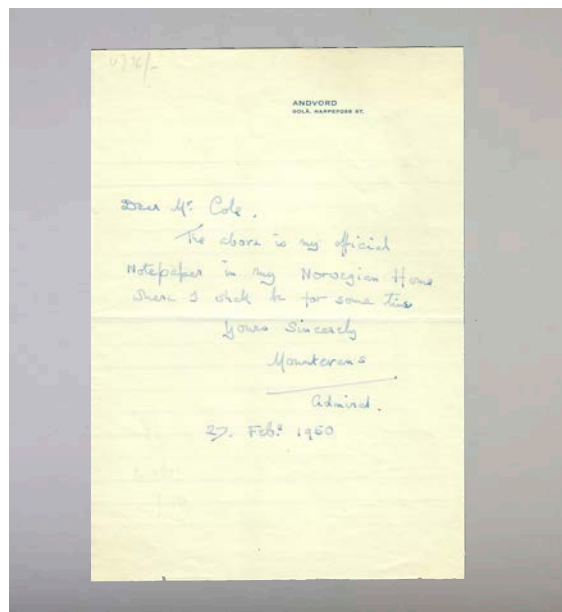 ANDVORD
GOLÅ, HARPEFOSS ST.
Dear Mr. Cole.
The above is my official
Notepaper in my Norwegian Home
where I shall be for some time
Yours Sincerely
Mountevans
Admiral.
27. Feb. 1960